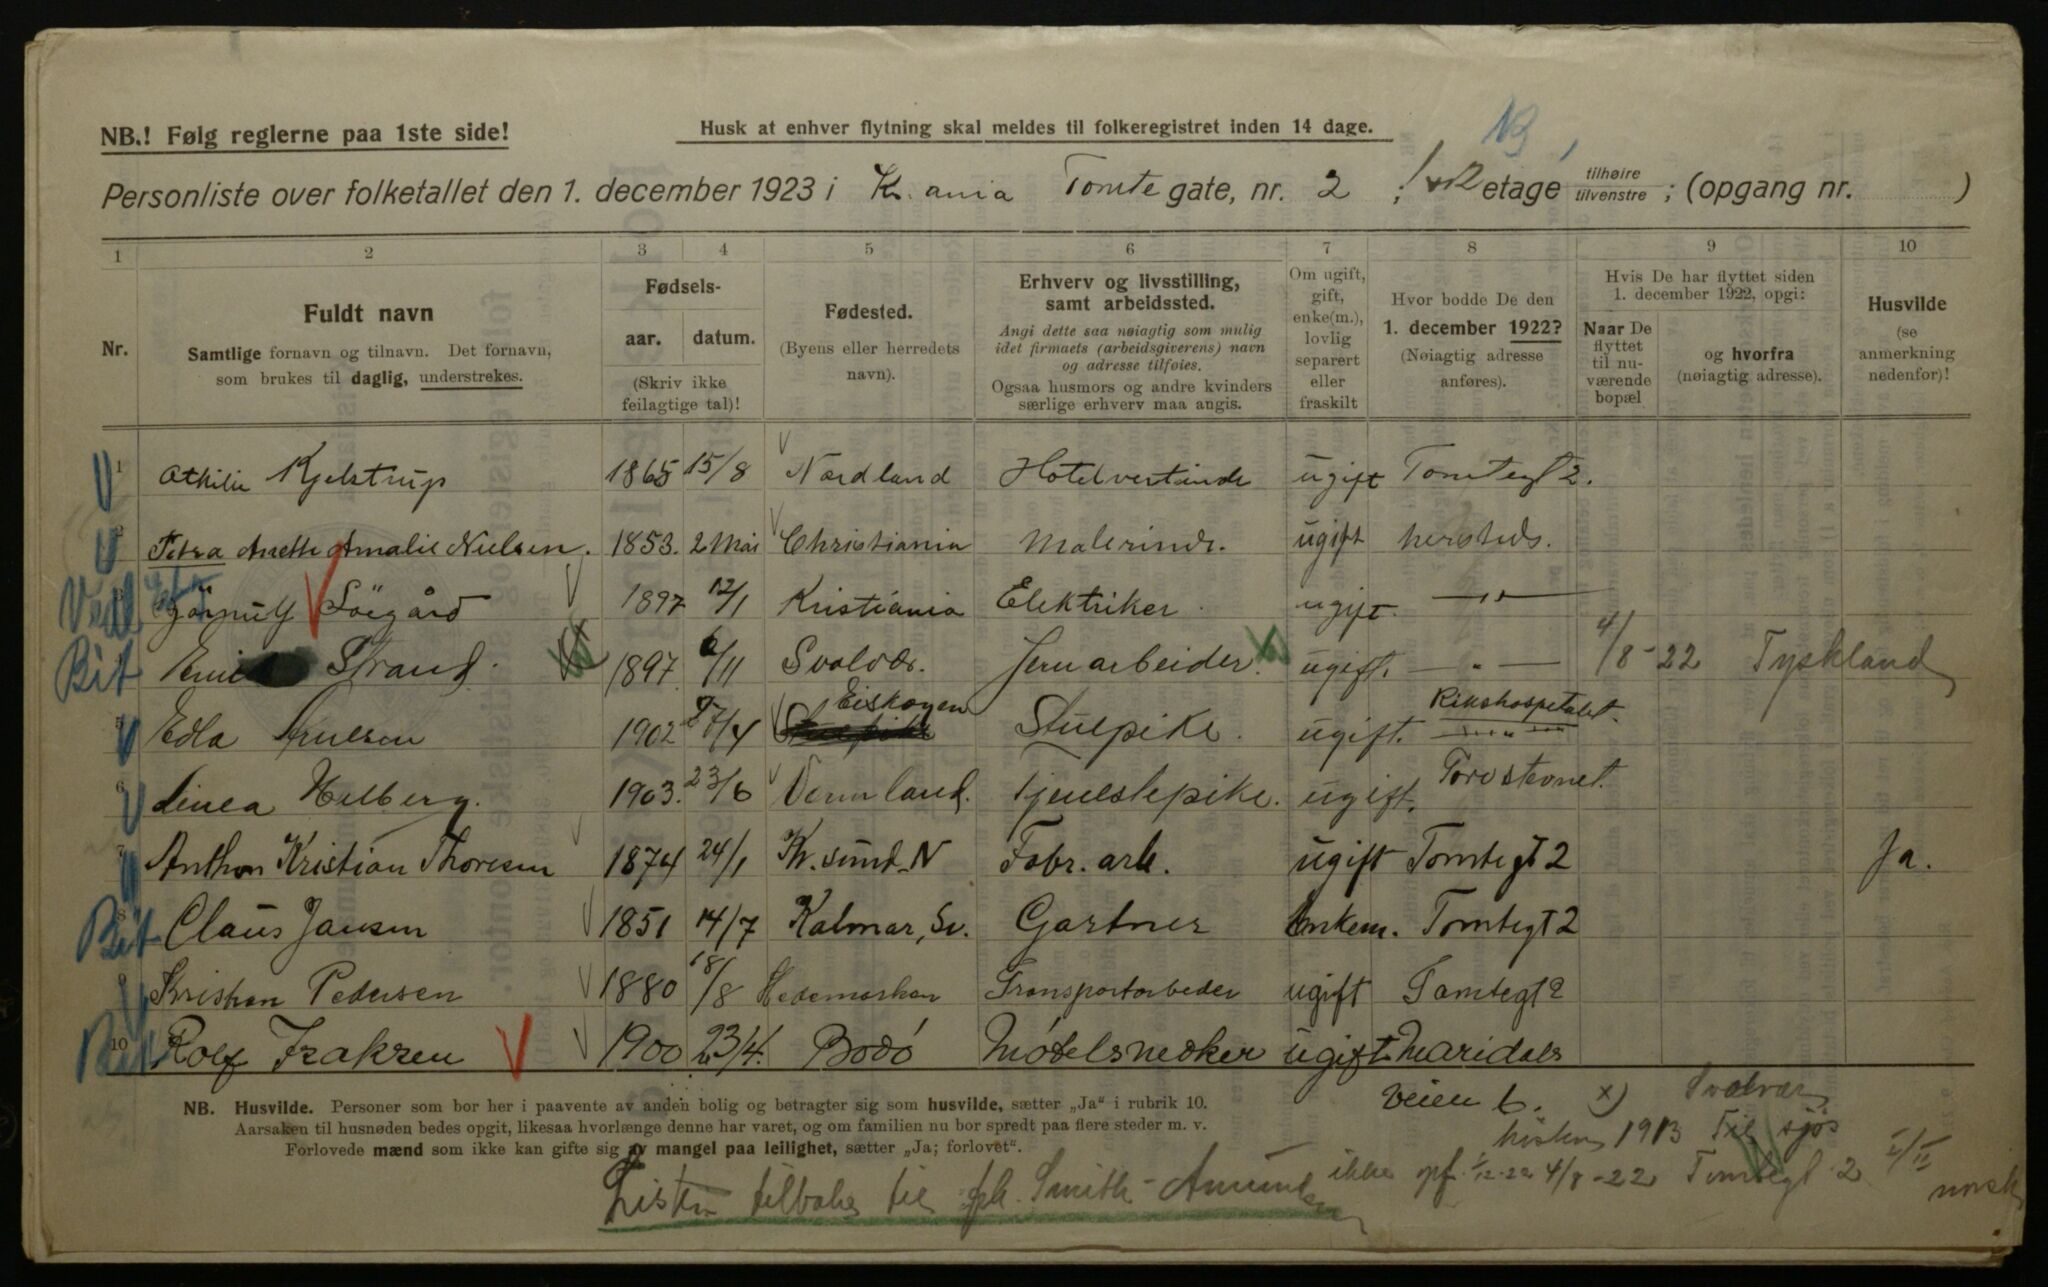 NB.! Følg reglerne paa 1ste side!
Husk at enhver flytning skal meldes til folkeregistret inden 14 dage.
Personliste over folketallet den 1. december 1923 i Kr.ania Tomte gate, nr. 2 ; etage tilhøire tilvenstre ; (opgang nr. )
1 2 3 4 5 6 7 8 9 10
Nr.
Fuldt navn
Samtlige fornavn og tilnavn. Det fornavn,
som brukes til daglig, understrekes.
Fødsels-
aar. datum.
(Skriv ikke
feilagtige tal)!
Fødested.
(Byens eller herredets
navn).
Erhverv og livsstilling,
samt arbeidssted.
Angi dette saa nøiagtig som mulig
idet firmaets (arbeidsgiverens) navn
og adresse tilføies.
Ogsaa husmors og andre kvinders
særlige erhverv maa angis.
Om ugift,
gift,
enke(m.),
lovlig
separert
eller
fraskilt
Hvor bodde De den
1. december 1922?
(Nøiagtig adresse
anføres).
Hvis De har flyttet siden
1. december 1922, opgi:
Naar De
flyttet
til nu-
værende
bopæl
og hvorfra
(nøiagtig adresse).
Husvilde
(se
anmerkning
nedenfor)!
1 Othilie Kjelstrup 1865 15/8 Nordland Hotelvertinde ugift Tomtegt 2.
2 Petra Anette Amalie Nielsen. 1853. 2 Mai Christiania Malerinde. ugift hersteds.
3 Søegård 1897 12/1 Kristiania Elektriker ugift. —"—
Bit Strand. 1897 6/11 Svolvær. Jernarbeider. ugift. —"— 4/8-22 Tyskland
5 Edla 1902 27/4 Eiskogen Stuepike. ugift. Rikshospetalet.
6 Linea Helberg. 1903. 23/6 Vermland. Tjenestepike. ugift.
7 Anthon Kristian Thoresen 1874 24/1 Kr.sund.N Fabr.arb. ugift Tomtegt 2 Ja.
Bit 8 Claus Jansen 1851 14/7 Kalmar, Sv. Gartner Enkem. Tomtegt 2
9 Kristian Pedersen 1880 18/8 Hedemarken Transportarbeder ugift Tomtegt 2
Bit 10 Rolf Isaksen 1900 23/4. Bodó Móbelsnedker ugift. Maridals
veien 6. x) Svolvær
NB. Husvilde. Personer som bor her i paavente av anden bolig og betragter sig som husvilde, sætter „Ja" i rubrik 10.
Aarsaken til husnøden bedes opgit, likesaa hvorlænge denne har varet, og om familien nu bor spredt paa flere steder m. v.
Forlovede mænd som ikke kan gifte sig av mangel paa leilighet, sætter „Ja; forlovet".
høsten 1913 Til sjös
ikke opf. 1/12-22 4/8-22 Tomtegt 2
norsk
Listen tilbake til frk. Smith-Amundsen